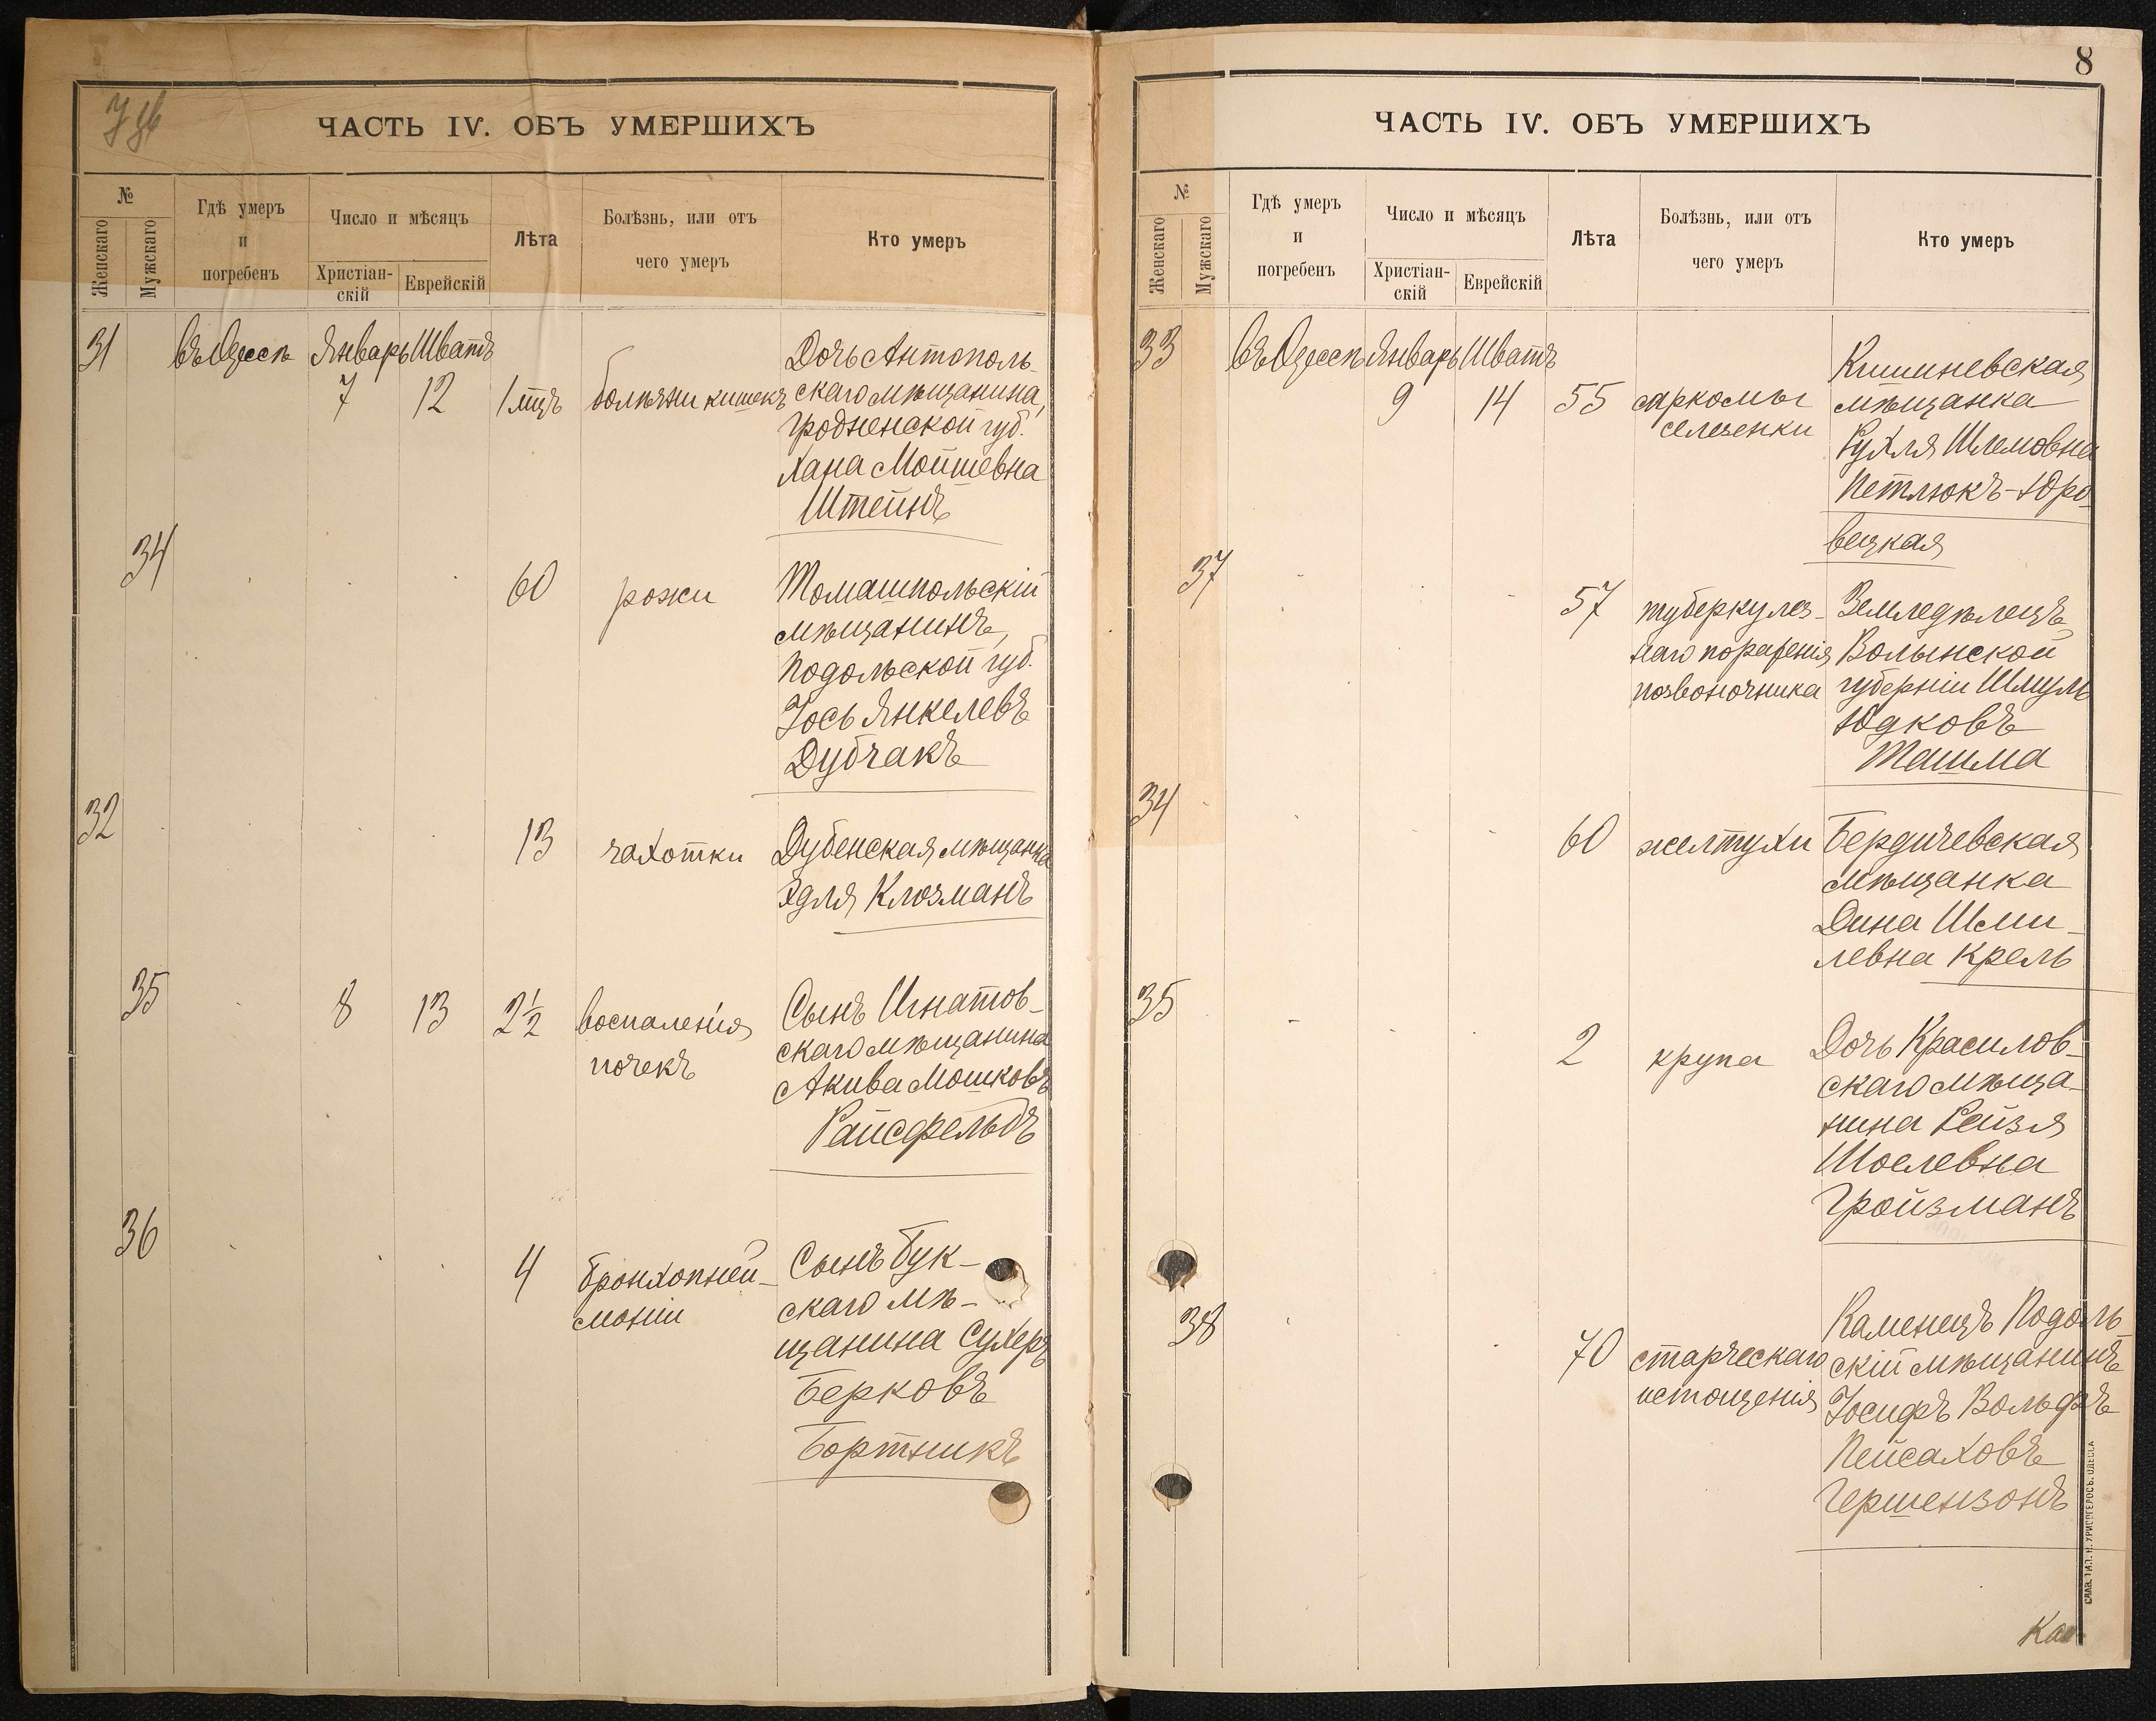 ЧАСТЬ IV. ОБЪ УМЕРШИХЪ
№
Женскаго
Мужскаго
Гдѣ умеръ
и
погребенъ
Число и мѣсяцъ
Христіан-
скій
Еврейскій
Лѣта
Болѣзнь, или отъ
чего умеръ
Кто умеръ
31 въ Одессѣ Январь Шватъ Дочь Антополь-
7 12 1 мцъ болѣзни кишекъ скаго мѣщанина,
Гродненской губ.
Хана Мойшевна
Штейнъ
34
60 рожи Томашпольскій
мѣщанинъ,
Подольской губ.
Іось Янкелевъ
Дубчакъ
32
13 чахотки Дубенская мѣщанка
Эдля Клозманъ
35 8 13 2½ воспаленія Сынъ Игнатов-
почекъ скаго мѣщанина
Акива Мошковъ
Райсфельдъ
36
4 бронхопней- Сынъ Бук-
моніи скаго мѣ-
щанина Сухеръ
Берковъ
Бортникъ
8
ЧАСТЬ IV. ОБЪ УМЕРШИХЪ
№
Женскаго
Мужскаго
Гдѣ умеръ
и
погребенъ
Число и мѣсяцъ
Христіан-
скій
Еврейскій
Лѣта
Болѣзнь, или отъ
чего умеръ
Кто умеръ
33 въ Одессѣ Январь Шватъ Кишиневская
9 14 55 саркомы мѣщанка
селезенки Рухля Шлемовна
Петлюкъ-Юро-
вецкая
37
57 туберкулез- Земледѣлецъ
наго пораженія Волынской
позвоночника губерніи Шмуль
Юдковъ
Ташма
34
60 желтухи Бердичевская
мѣщанка
Дина Шми-
левна Крель
35
2 крупа Дочь Красилов-
скаго мѣща-
нина Рейзя
Шоелевна
Гройзманъ
38 Каменецъ Подоль
70 старческаго скій мѣщанинъ
истощенія Іосифъ Вольфъ
Пейсаховъ
Гершензонъ
Ка